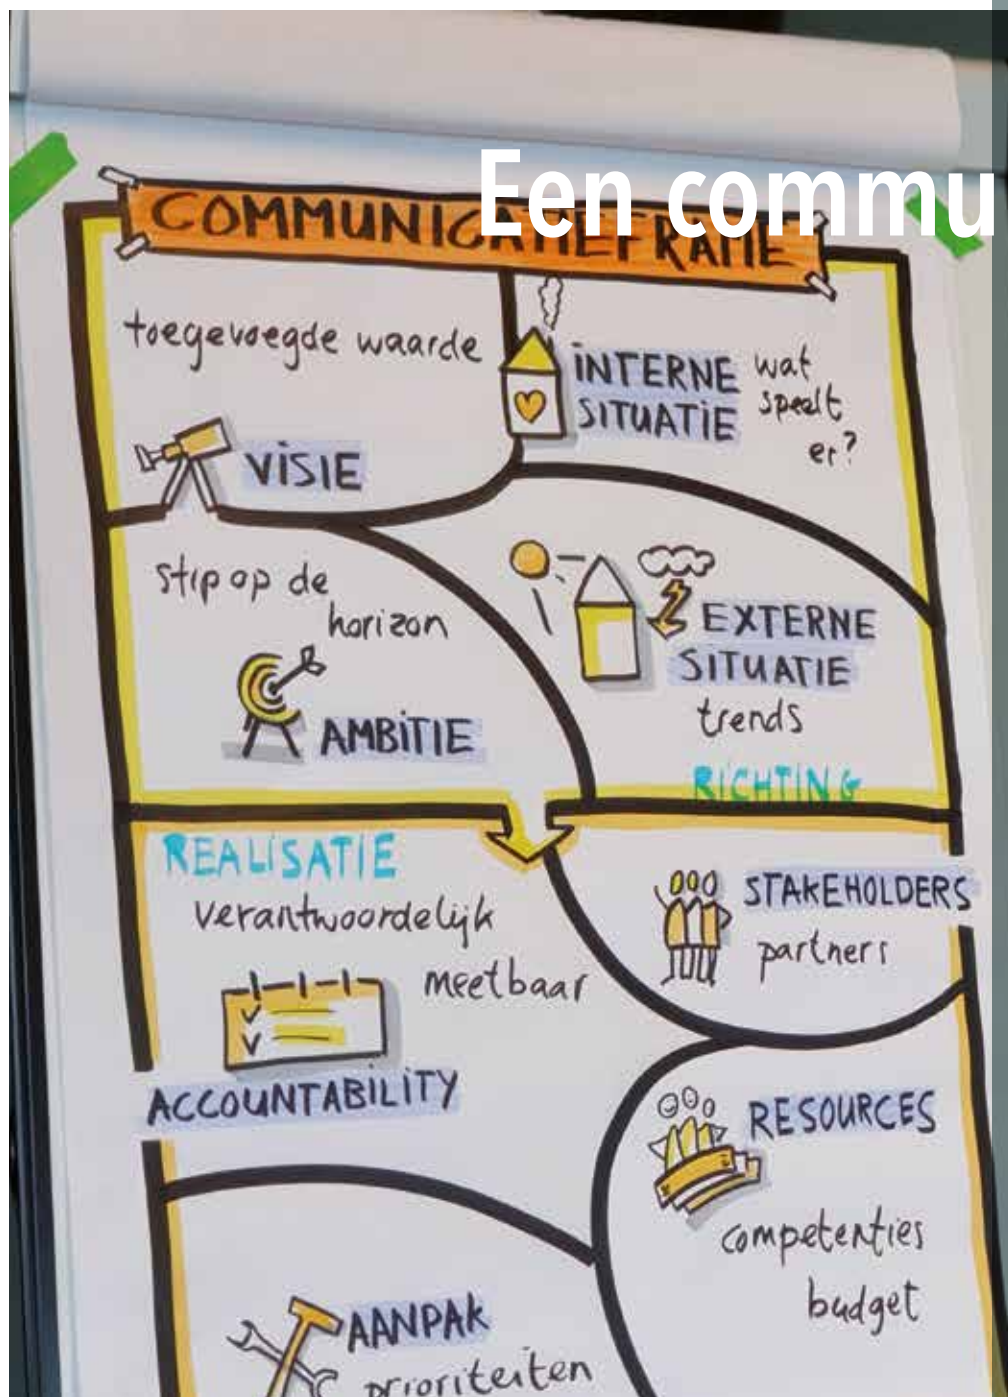 Een commu
COMMUNICATIEFRAME
toegevoegde waarde
VISIE
INTERNE
SITUATIE
wat
speelt
er?
stip op de
horizon
AMBITIE
EXTERNE
SITUATIE
trends
RICHTING
REALISATIE
verantwoordelijk
meetbaar
ACCOUNTABILITY
STAKEHOLDERS
partners
RESOURCES
competenties
budget
AANPAK
prioriteiten